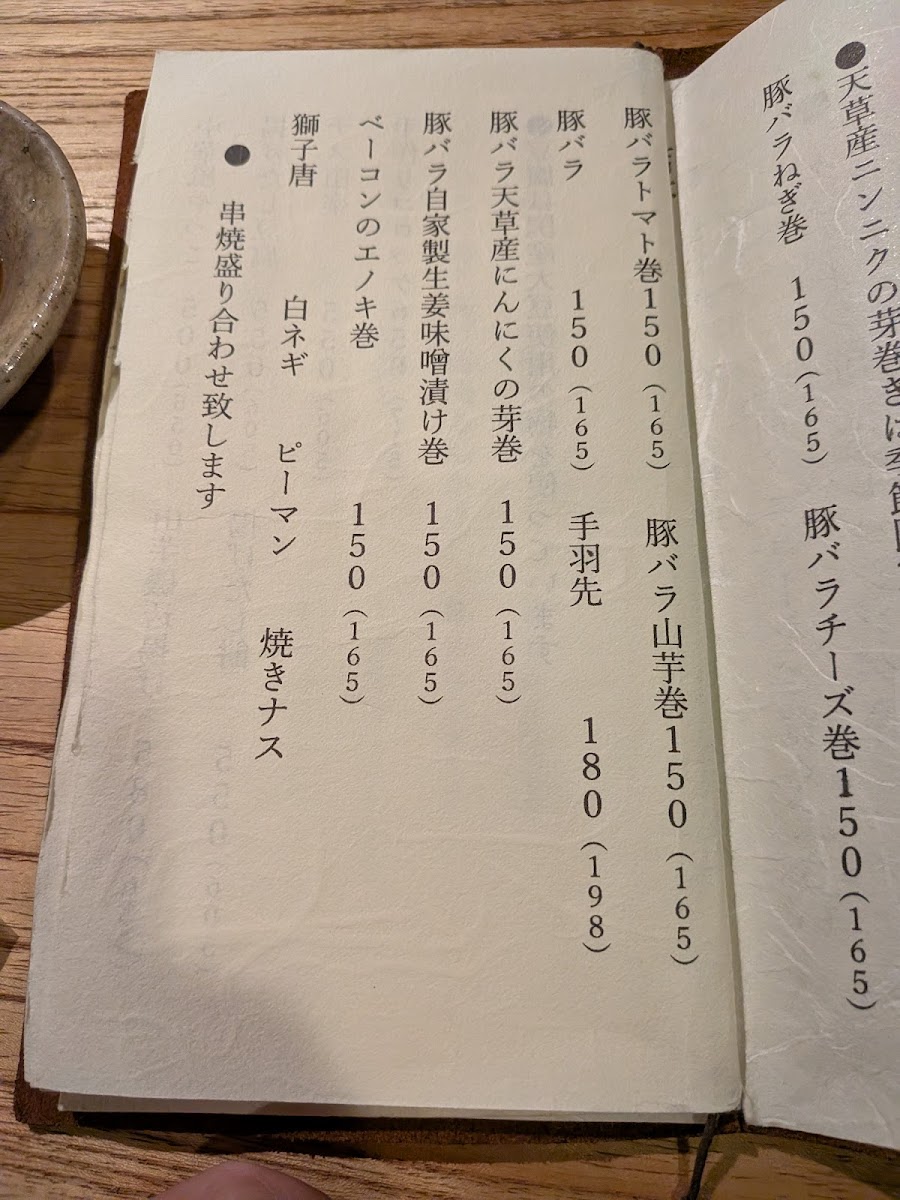 ●天草産ニンニクの芽巻きは季節
豚バラねぎ巻 150(165) 豚バラチーズ巻150(165)
豚バラトマト巻150(165) 豚バラ山芋巻150(165)
豚バラ 150(165) 手羽先 180(198)
豚バラ天草産にんにくの芽巻 150(165)
豚バラ自家製生姜味噌漬け巻 150(165)
ベーコンのエノキ巻 150(165)
獅子唐 白ネギ ピーマン 焼きナス
● 串焼盛り合わせ致します